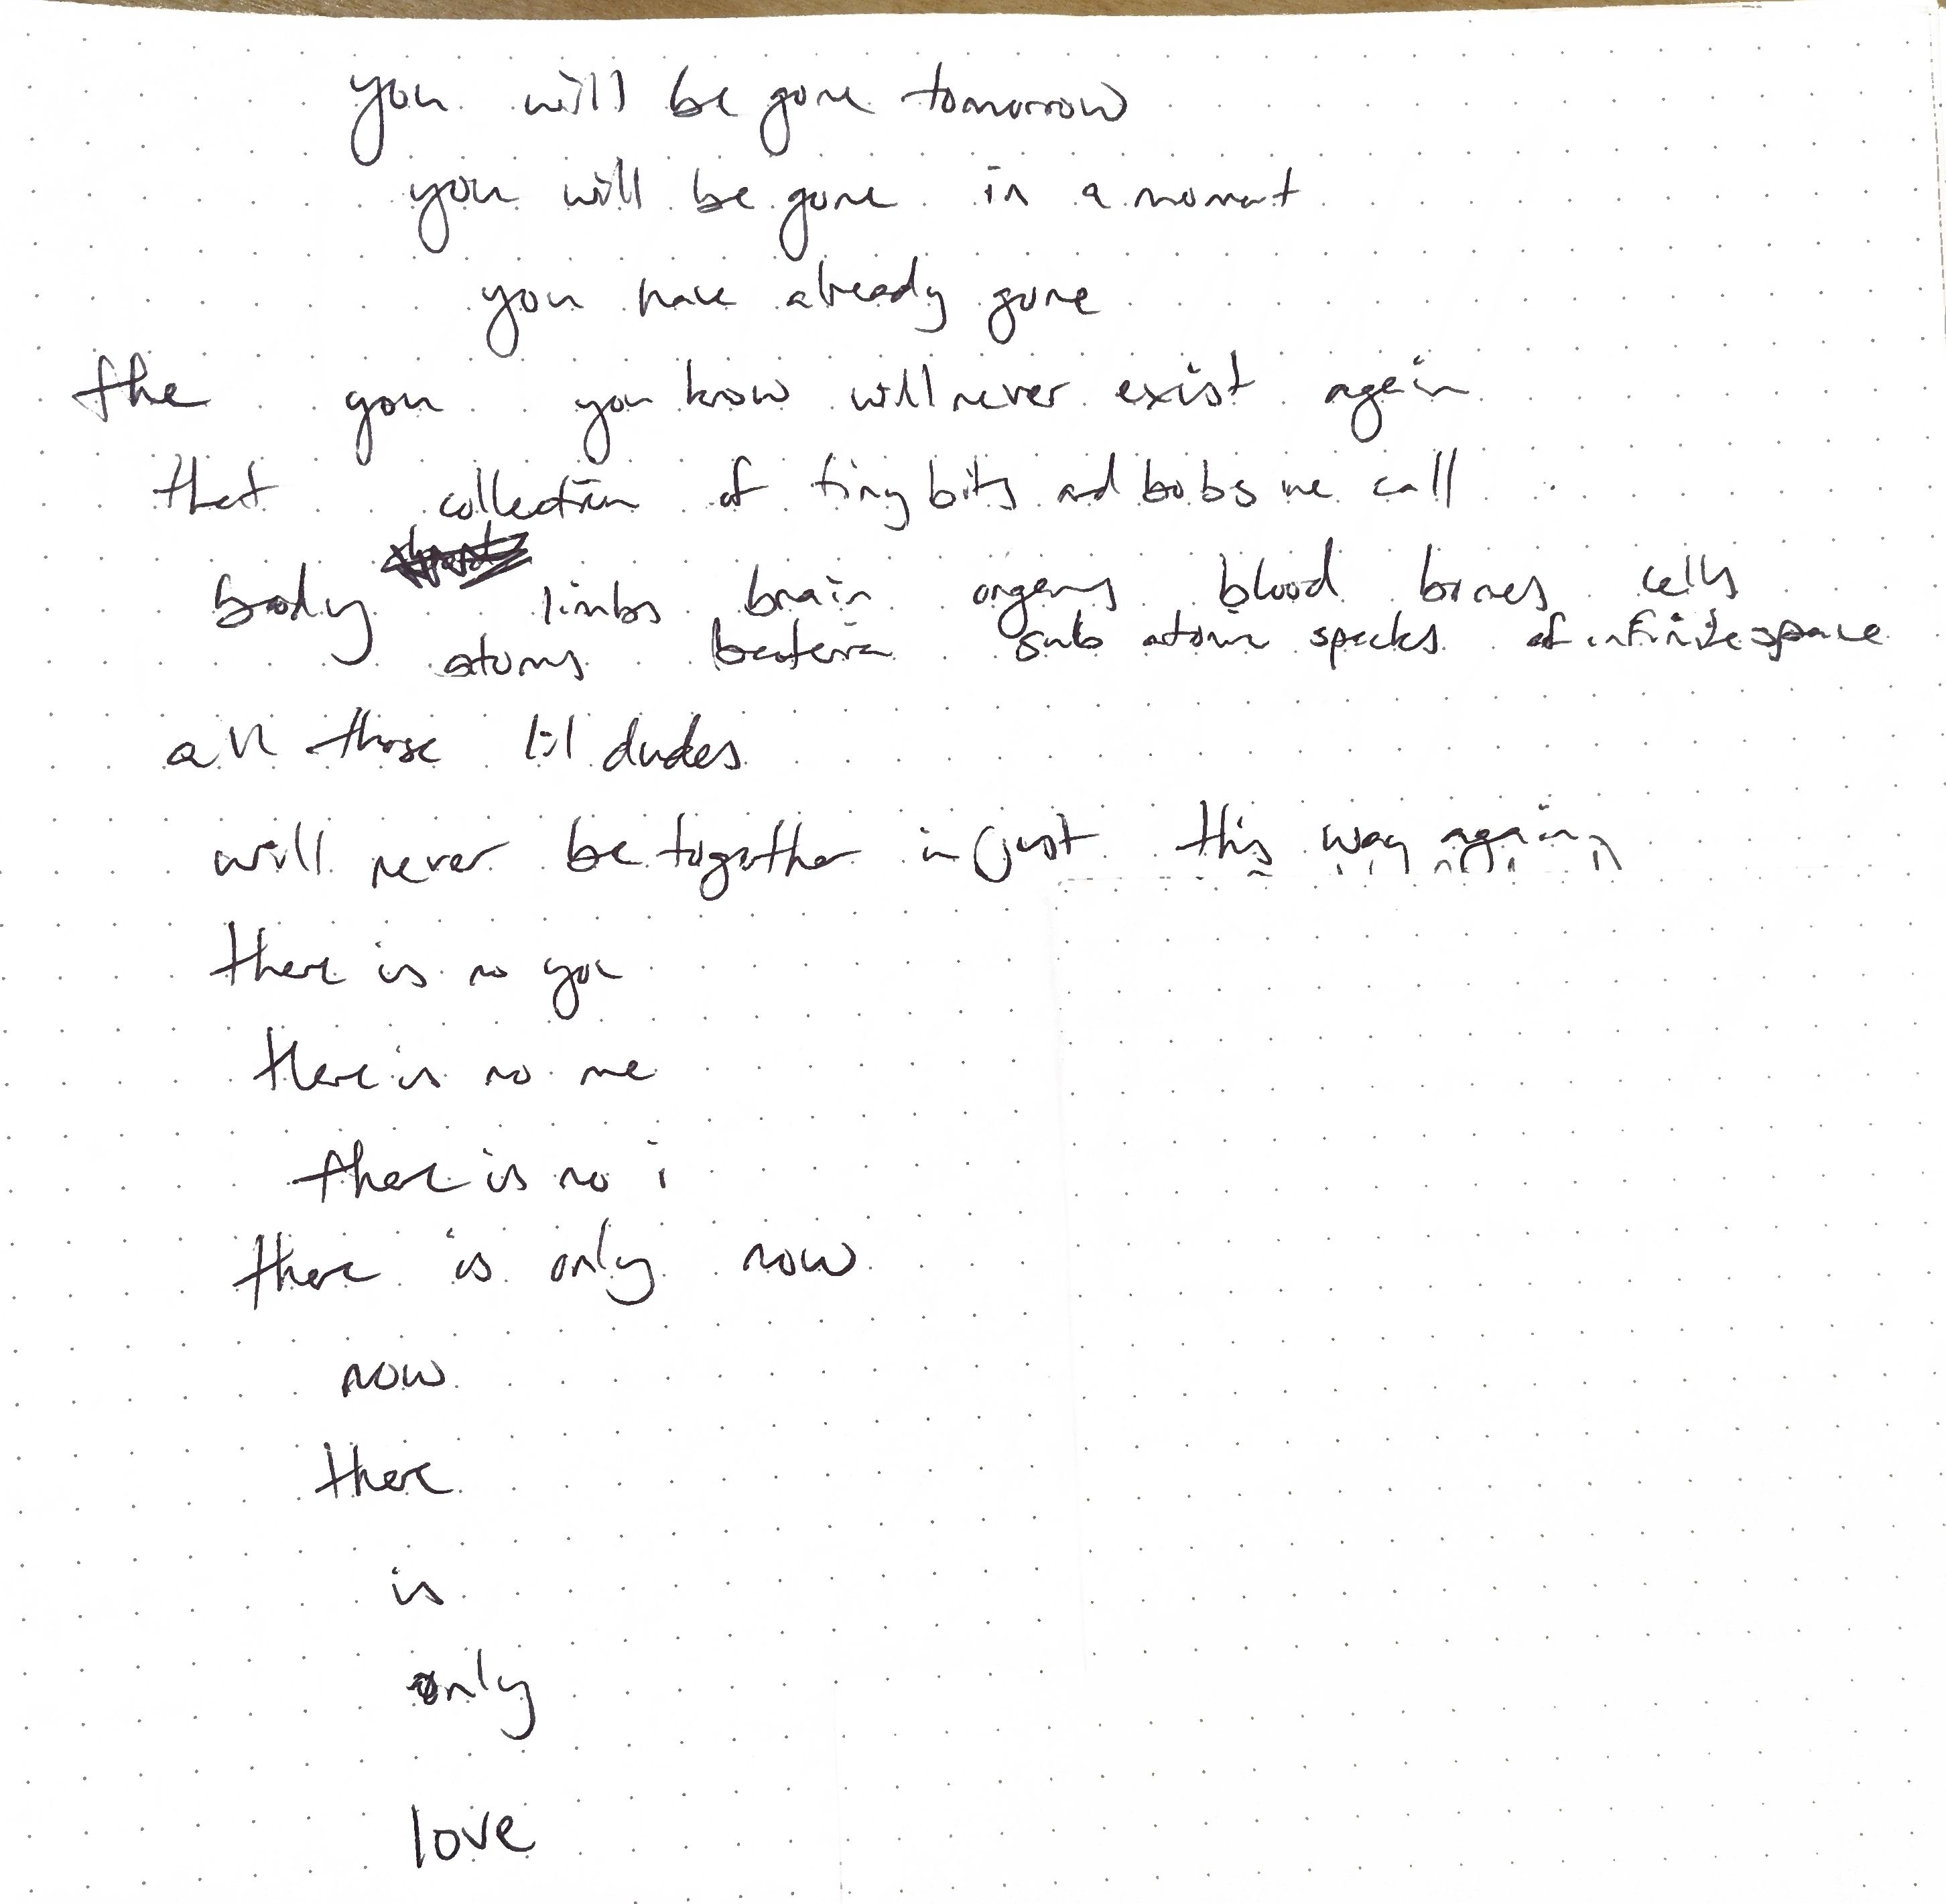 you will be gone tomorrow
you will be gone in a moment
you have already gone
the you you know will never exist again
that collection of tiny bits and bobs we call
body limbs brain organs blood bones cells
atoms bacteria sub atomic specks of infinite space
all those lil dudes
will never be together in just this way again
there is no you
there is no me
there is no i
there is only now
now
there
is
only
love